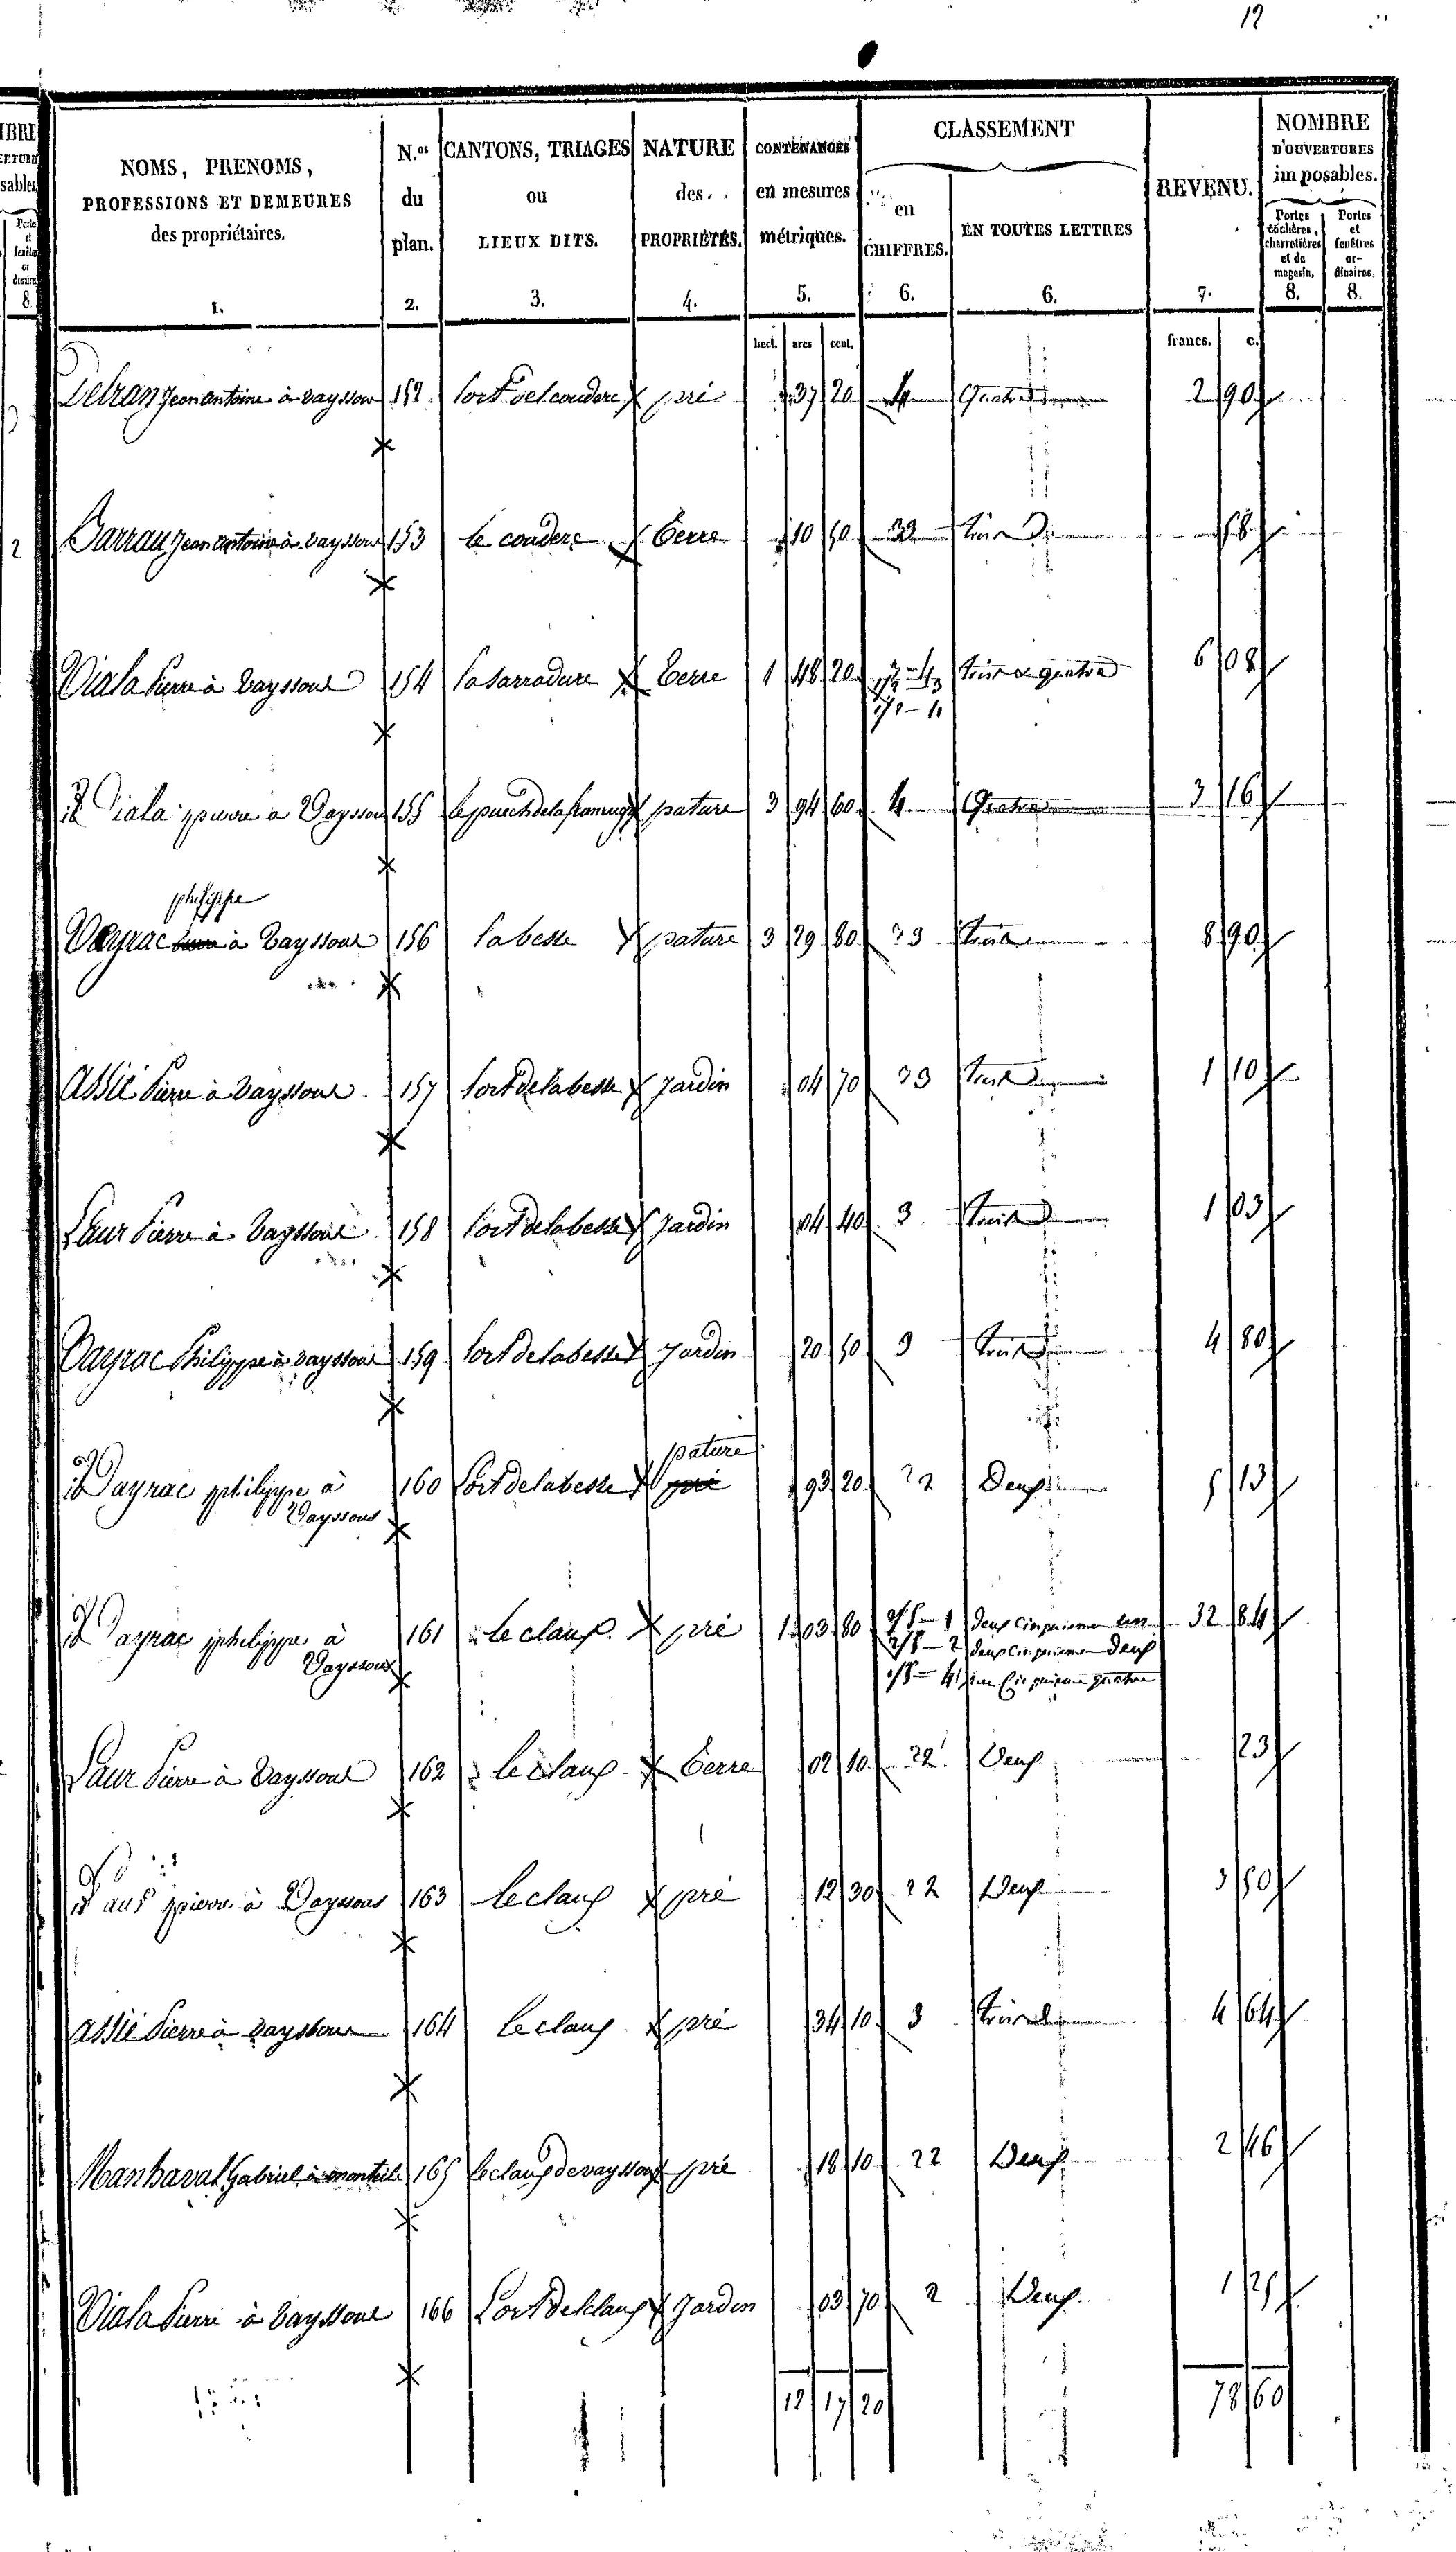 12
NOMS, PRENOMS, PROFESSIONS ET DEMEURES des propriétaires. 1.
N.os du plan. 2.
CANTONS, TRIAGES ou LIEUX DITS. 3.
NATURE des PROPRIÉTÉS. 4.
CONTENANCES en mesures métriques. 5.
CLASSEMENT
en CHIFFRES. 6.
EN TOUTES LETTRES 6.
REVENU. 7.
NOMBRE D'OUVERTURES imposables.
Portes cochères, charretières et de magasin. 8.
Portes et fenêtres ordinaires. 8.
hect. ares cent. francs. c.
Jean antoine à vayssous 152 pré 37 20 4 Quatre 2 90
Barrau Jean antoine à vayssous 153 le couderc terre 10 50 3 trois 58
Viala Pierre à Vayssous 154 la sarradure terre 1 48 20 trois & quatre 6 08
Viala pierre à Vayssous 155 pature 3 94 60 4 Quatre 3 16
philippe
Vayrac à Vayssous 156 la besse pature 3 29 80 3 trois 8 90
assié Pierre à Vayssous 157 l'ort de la besse jardin 04 70 3 trois 1 10
Saux Pierre à Vayssous 158 l'ort de la besse jardin 04 40 3 trois 1 03
Vayrac Philippe à vayssous 159 l'ort de la besse jardin 20 50 3 trois 4 80
pature
id Vayrac philippe à Vayssous 160 l'ort de la besse pré 93 20 2 Deux 5 13
id Vayrac philippe à Vayssous 161 le claux pré 1 03 80 2/5 - 1 deux cinquieme un 32 84
2/5 - 2 deux cinquieme deux
1/5 - 4 un cinquieme quatre
Saux Pierre à Vayssous 162 le claux terre 02 10 2 Deux 23
id Saux pierre à Vayssous 163 le claux pré 12 30 2 Deux 3 50
assié Pierre à vayssous 164 le claux pré 34 10 3 trois 4 64
Manhaval Gabriel à monteils 165 le claux de vayssous pré 18 10 2 Deux 2 46
Viala Pierre à Vayssous 166 L'ort del claux jardin 03 70 2 Deux 1 25
12 17 20 78 60